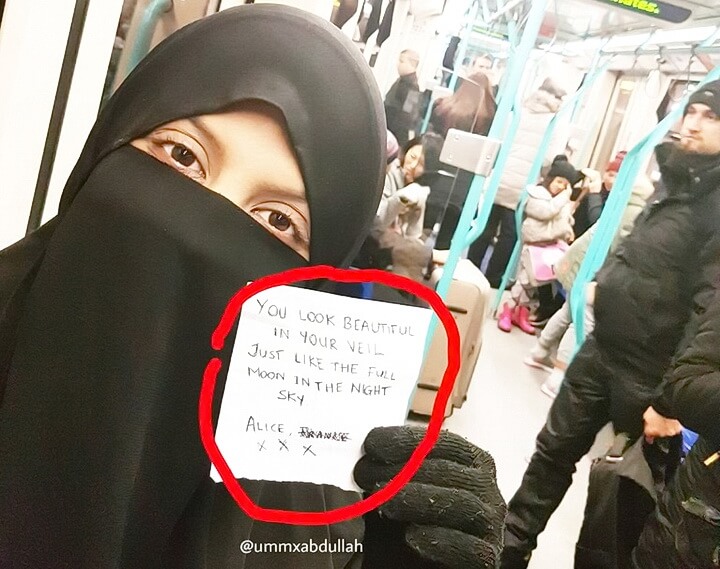 YOU LOOK BEAUTIFUL
IN YOUR VEIL
JUST LIKE THE FULL
MOON IN THE NIGHT
SKY
ALICE,
x x x
@ummxabdullah